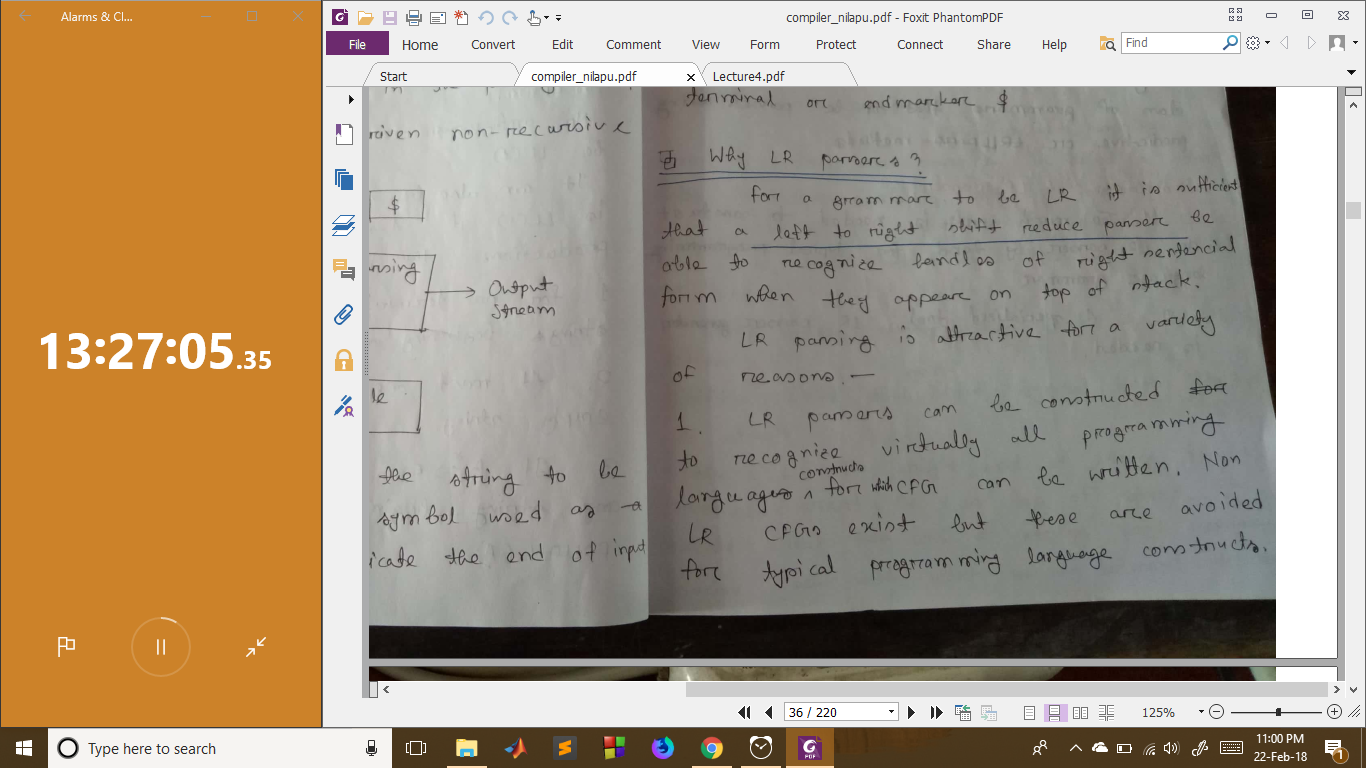 Alarms & Cl...
13:27:05.35
compiler_nilapu.pdf - Foxit PhantomPDF
File Home Convert Edit Comment View Form Protect Connect Share Help Find
Start compiler_nilapu.pdf Lecture4.pdf
riven non-recursive
$
ursing
Output
stream
le
the string to be
symbol used as a
icate the end of input
terminal or endmarker $
Why LR parsers?
for a grammar to be LR it is sufficient
that a left to right shift reduce parser be
able to recognize handles of right sentencial
form when they appear on top of stack.
LR parsing is attractive for a variety
of reasons. —
1. LR parsers can be constructed for
to recognize virtually all programming
constructs
languages for which CFG can be written. Non
LR CFGs exist but these are avoided
for typical programming language constructs.
36 / 220
125%
Type here to search
11:00 PM
22-Feb-18
1